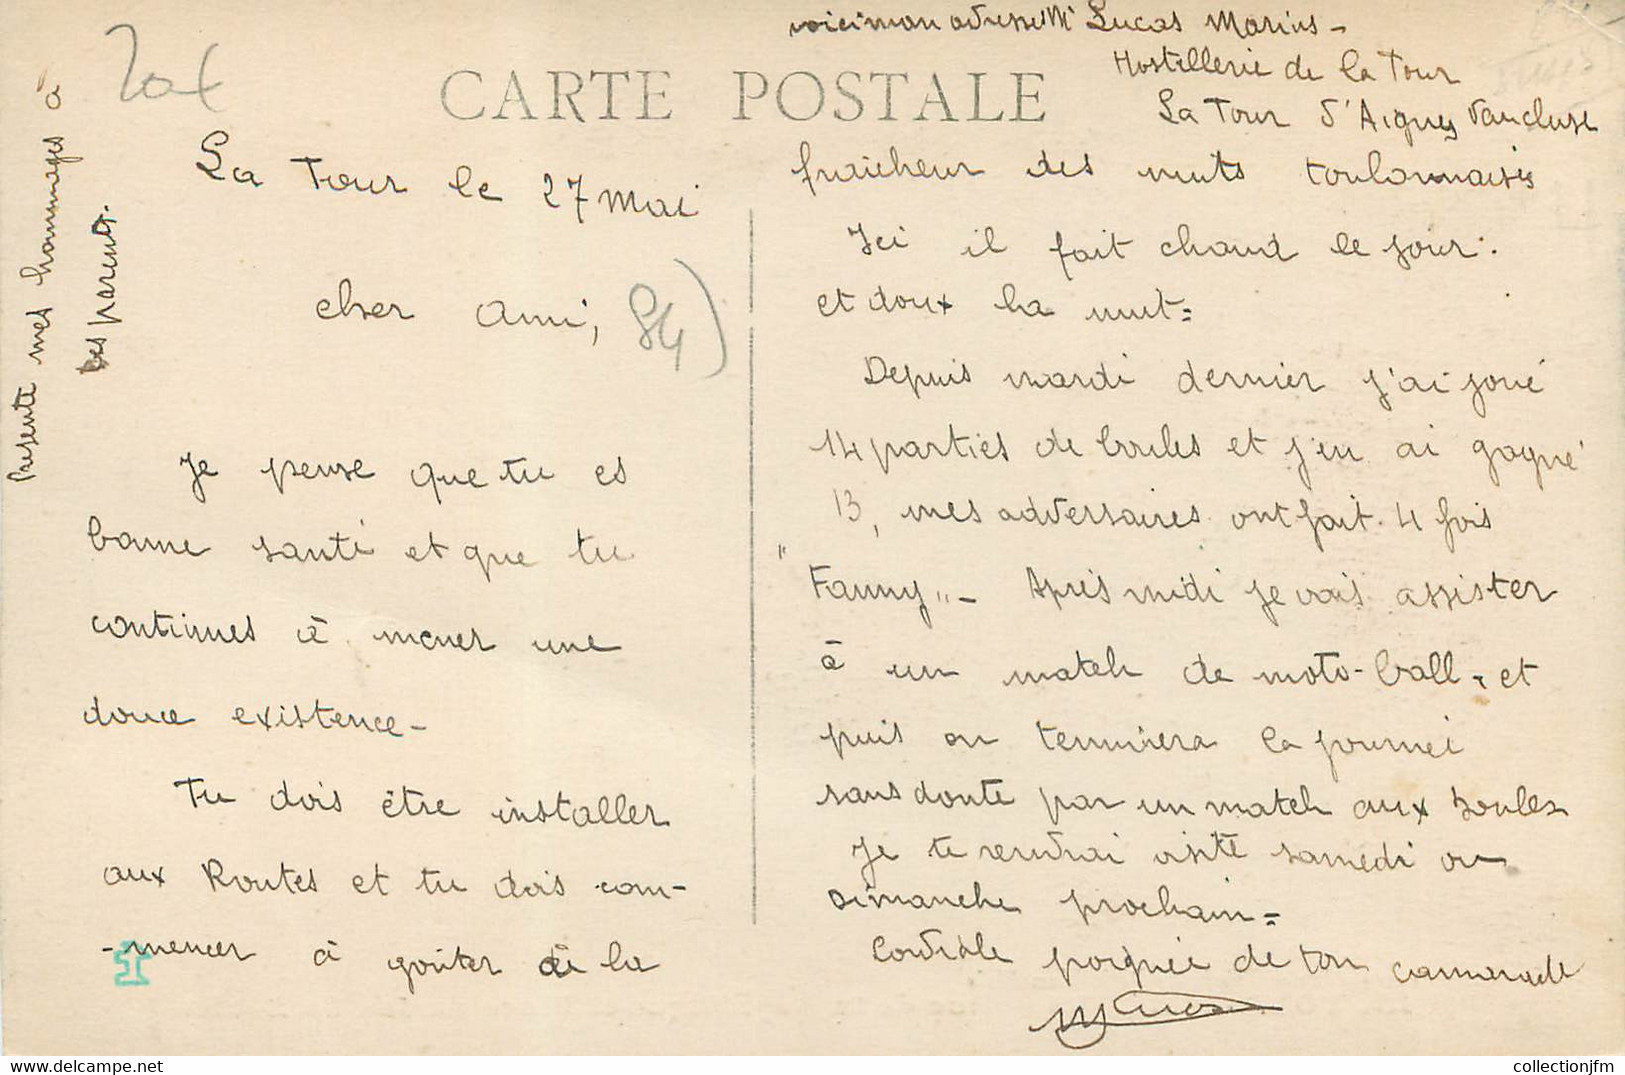 CARTE POSTALE
voici mon adresse Mr Lucas Marius -
Hostellerie de la Tour
La Tour d'Aigues Vaucluse
La Tour le 27 mai
cher Ami,
84)
Je pense que tu es
bonne santé et que tu
continues à mener une
douce existence -
Tu dois être installer
aux Routes et tu dois com-
-mencer à goûter à la
fraîcheur des nuits toulonnaises
Ici il fait chaud le jour.
et doux la nuit =
Depuis mardi dernier j'ai joué
14 parties de boules et j'en ai gagné
13, mes adversaires ont fait 4 fois
"Fanny" - Après midi je vais assister
à un match de moto-ball, et
puis on terminera la journeé
sans doute par un match aux boules
Je te rendrai visite samedi ou
Dimanche prochain =
Cordiale poigneé de ton camarade
Presente mes hommages à
tes parents.
collectionjfm